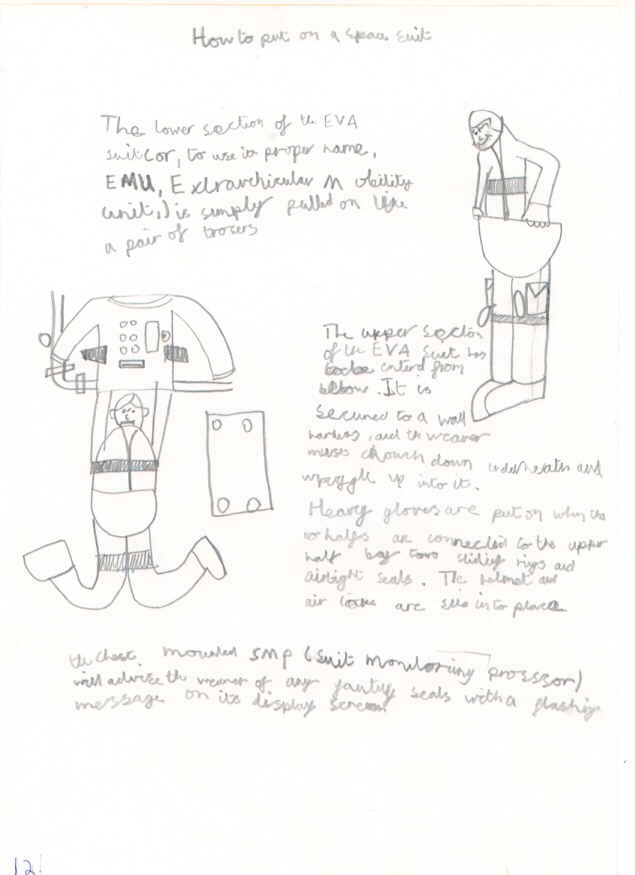 How to put on a space suit
The lower section of the EVA
suit (or, to use its proper name,
EMU, Extravehicular Mobility
unit,) is simply pulled on like
a pair of trosers
The upper section
of the EVA suit has
to be enterd from
below. It is
secured to a wall
and the wearer
down underneath and
wriggle up into it.
Heavy gloves are put on when the
halfs are connected to the upper
half by two sliding rings and
airtight seals. The helmet and
air are into place
the chest mounted SMP (suit monitoring prossor)
will advise the wearer of any faulty seals with a flashing
message on its display screen
12